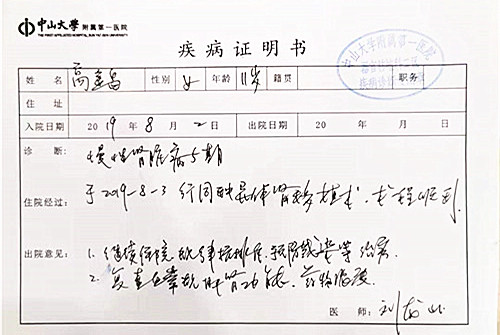 中山大学 附属第一医院
THE FIRST AFFILIATED HOSPITAL, SUN YAT-SEN UNIVERSITY
疾病证明书
中山大学附属第一医院
姓名 高 性别 女 年龄 11岁 籍贯 职务
住址
入院日期 2019 年 8 月 2 日 出院日期 20 年 月 日
诊断: 慢性肾脏病5期
住院经过: 于2019-8-3 行同种异体肾移植术, 手术顺利.
出院意见: 1. 继续住院 抗排斥, 预防感染等治疗.
2. 复查血常规, 肝肾功能, 药物浓度
医师: